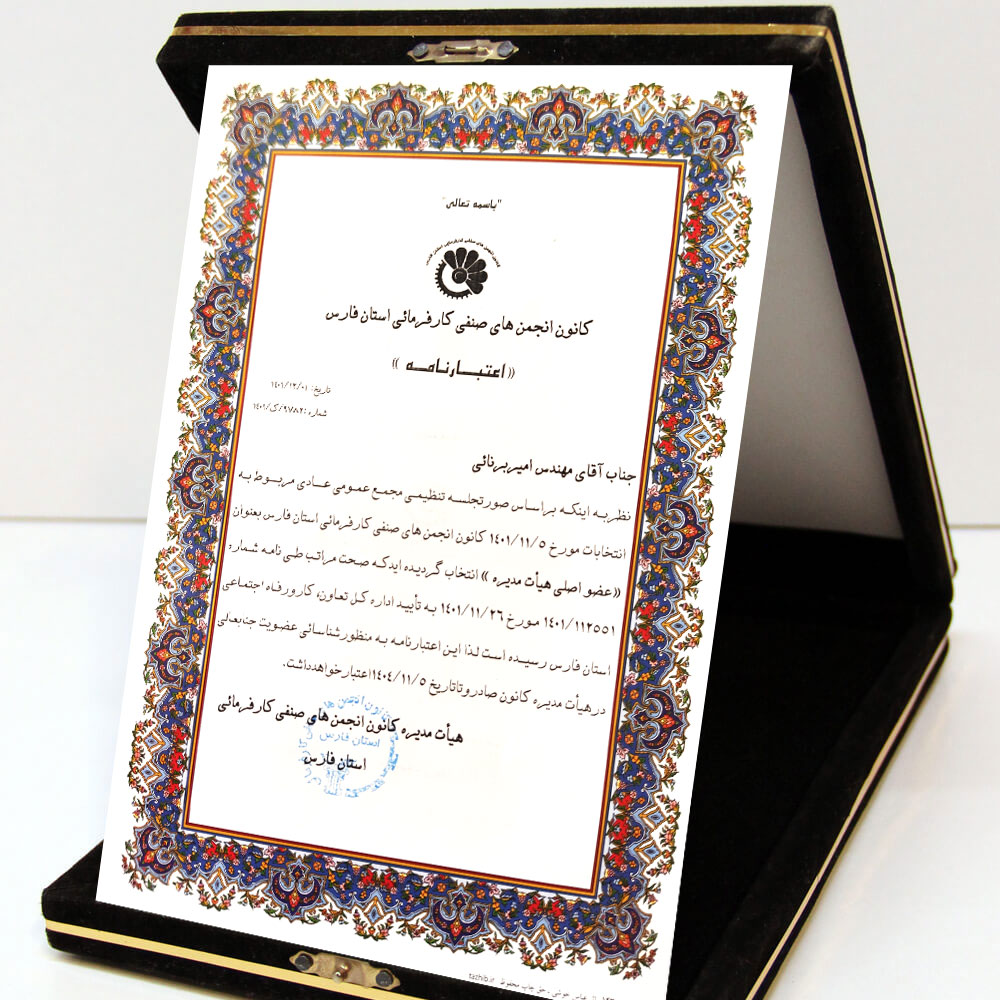 "باسمه تعالی"
کانون انجمن های صنفی کارفرمائی استان فارس
«اعتبارنامه»
تاریخ: ۱۴۰۱/۱۲/۰۱
شماره: ۹۷۸۲/ک/۱۴۰۱
جناب آقای مهندس امیر برنائی
نظر به اینکه براساس صورتجلسه تنظیمی مجمع عمومی عادی مربوط به
انتخابات مورخ ۱۴۰۱/۱۱/۵ کانون انجمن های صنفی کارفرمائی استان فارس بعنوان
«عضو اصلی هیأت مدیره» انتخاب گردیده ایدکه صحت مراتب طی نامه شماره
۱۴۰۱/۱۱۲۵۵۱ مورخ ۱۴۰۱/۱۱/۲۶ به تأیید اداره کل تعاون، کار و رفاه اجتماعی
استان فارس رسیده است لذا این اعتبارنامه به منظور شناسائی عضویت جنابعالی
در هیأت مدیره کانون صادر و تا تاریخ ۱۴۰۴/۱۱/۵ اعتبار خواهد داشت.
هیأت مدیره کانون انجمن های صنفی کارفرمائی
استان فارس
استان فارس
حق چاپ محفوظ tazhib.ir